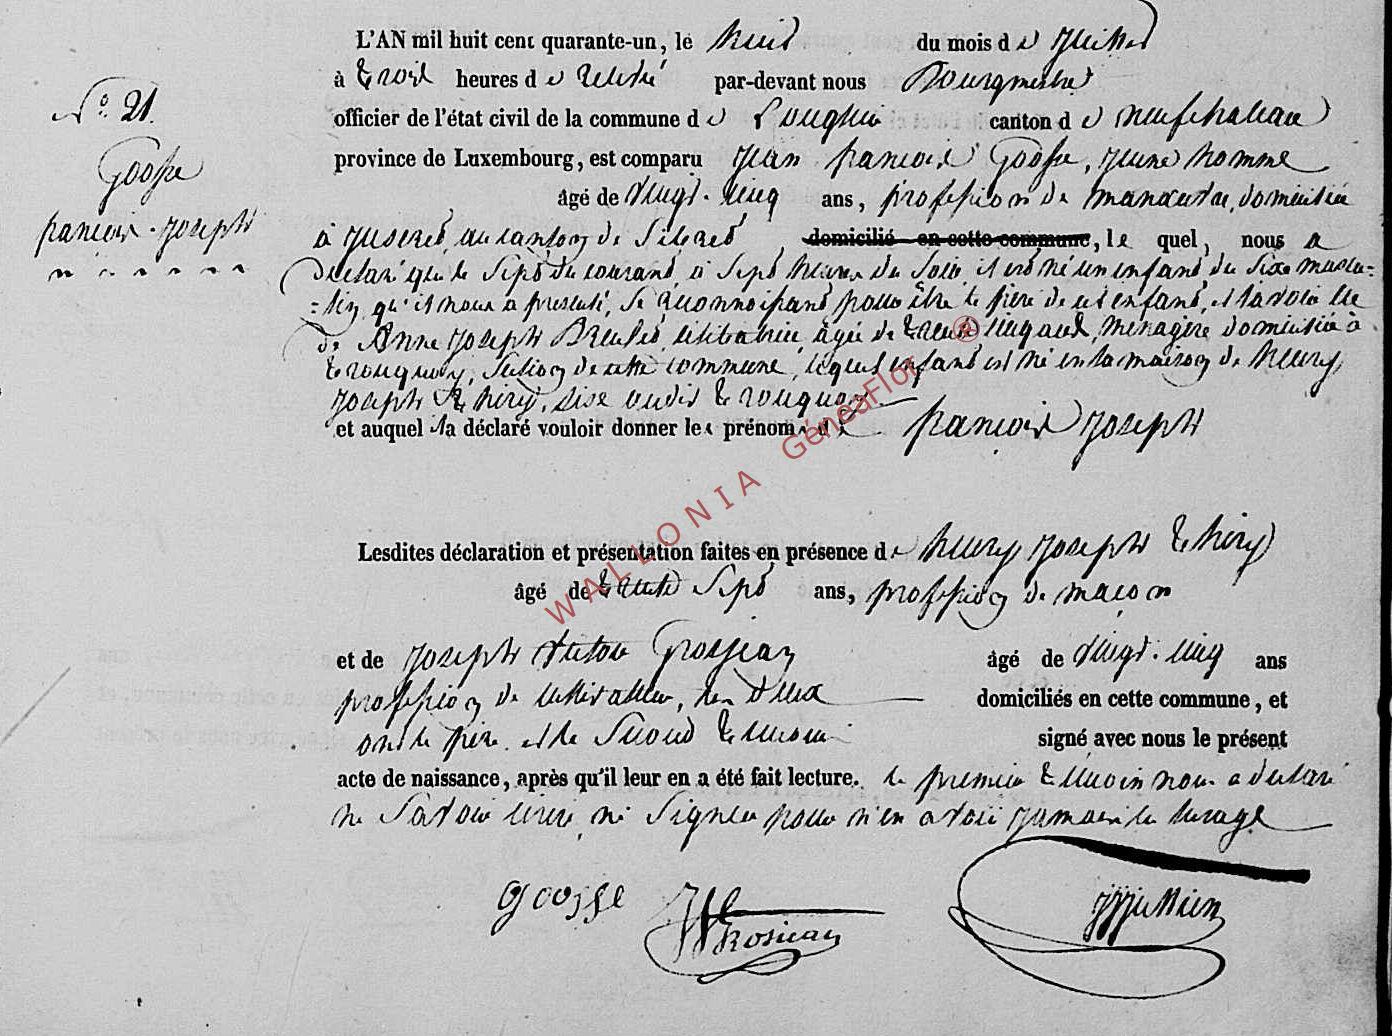 N° 21.
Goosse
francois-Joseph
L'AN mil huit cent quarante-un, le huit du mois de Juillet
à trois heures de relevé par-devant nous Bourgmestre
officier de l'état civil de la commune de Longlier canton de neufchateau
province de Luxembourg, est comparu Jean francois Goosse, jeune homme
âgé de vingt-cinq ans, profession de manœuvre, domicilié
à Juseret, au canton de Sibret, domicilié en cette commune, le quel, nous a
déclaré que le Sept du courant, à Sept heures du Soir, il est né un enfant du Sexe mascu=
=lin, qu'il nous a présenté, Se reconnoissant pour être le père de cet enfant, et l'avoir eu
de Anne Joseph, célibataire, âgée de trente cinq ans, ménagère, domiciliée à
tronquoy, Section de cette commune, lequel enfant est né en la maison de henry
Joseph thiry, sise audit tronquoy.
et auquel il a déclaré vouloir donner les prénoms de francois Joseph
Lesdites déclaration et présentation faites en présence de henry Joseph thiry
âgé de trente Sept ans, profession de maçon
et de Joseph victor Grosjean âgé de vingt-cinq ans
profession de cultivateur, les deux domiciliés en cette commune, et
ont le père et le Second témoin signé avec nous le présent
acte de naissance, après qu'il leur en a été fait lecture. le premier témoin nous a déclaré
ne Savoir écrire, ni Signer pour n'en avoir jamais eu l'usage
goosse JV Grosjean
WALLONIA GénéaFlor ®